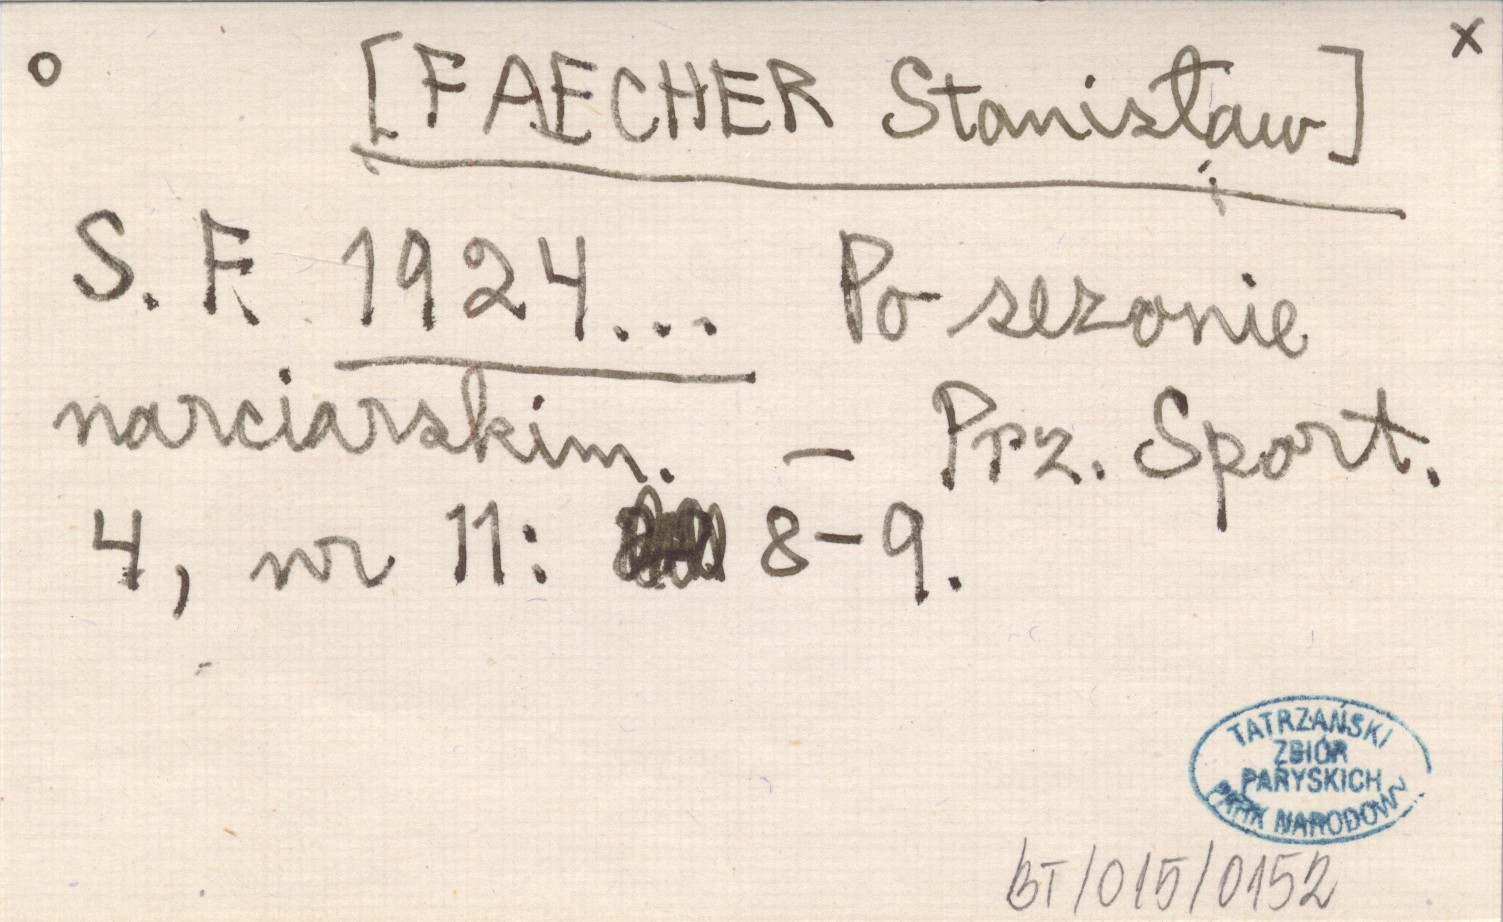 o [FAECHER Stanisław] x
S. F. 1924... Po sezonie
narciarskim. – Prz. Sport.
4, nr 11: 8–9.
TATRZAŃSKI
ZBIÓR
PARYSKICH
PARK NARODOWY
BT/015/0152